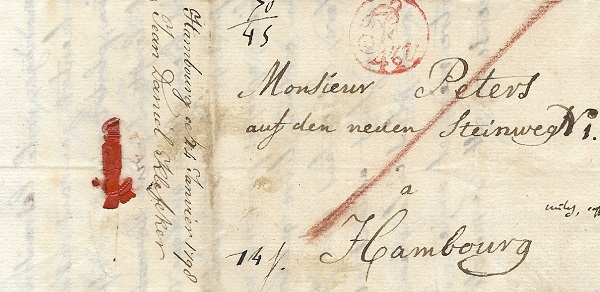 Hambourg ce 24 Janvier 1798
Jean Daniel Klefeker
70
45
Monsieur Peters
auf den neuen Steinweg N 1.
à
Hambourg
14 f.